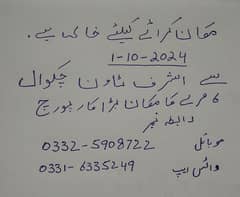 مکان کرائے کیلئے خالی ہے.
1-10-2024
سے اشرف ٹاون چکوال
6 مرلے کا مکان بڑا کار پورچ
رابطہ نمبر
موبائل 0332-5908722
واٹس ایپ 0331-6335249